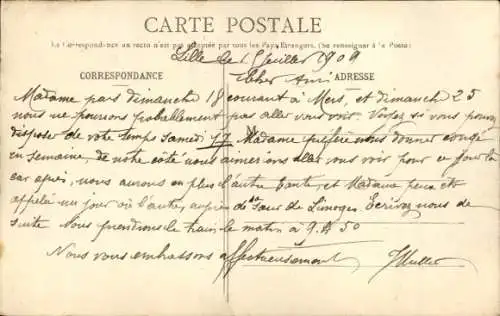 CARTE POSTALE
La Correspondance au recto n'est pas acceptée par tous les Pays Etrangers. (Se renseigner à la Poste)
Lille le Juillet 1909
CORRESPONDANCE
Cher Ami
ADRESSE
Madame part dimanche 18 courant à Mers, et dimanche 25
nous ne pourrons probablement pas aller vous voir. Voyez si vous pouvez
disposer de votre temps Samedi 17 Madame préfère nous donner congé
en semaine, de notre côté nous aimerions aller vous voir pour ce jour là
car après, nous aurons en plus l'autre tante, et Madame peut être
appelée un jour où l'autre, auprès de sa Sœur de Limoges. Ecrivez nous de
suite Nous prendrons le train le matin à 9 H 50
Nous vous embrassons affectueusement JMuller